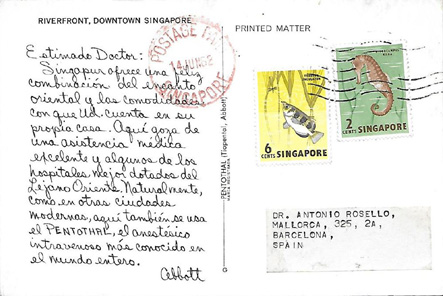 RIVERFRONT, DOWNTOWN SINGAPORE
Estimado Doctor:
Singapur ofrece una feliz
combinación del encanto
oriental y las comodidades
con que Ud. cuenta en su
propia casa. Aquí goza de
una asistencia médica
excelente y algunos de los
hospitales mejor dotados del
Lejano Oriente. Naturalmente,
como en otras ciudades
modernas, aquí también se usa
el PENTOTHAL, el anestésico
intravenoso más conocido en
el mundo entero.
Abbott
PENTOTHAL (Tiopental, Abbott)
G
PRINTED MATTER
POSTAGE
14 JUN 62
SINGAPORE
6 CENTS SINGAPORE
2 CENTS SINGAPORE
DR. ANTONIO ROSELLO,
MALLORCA, 325, 2A,
BARCELONA,
SPAIN